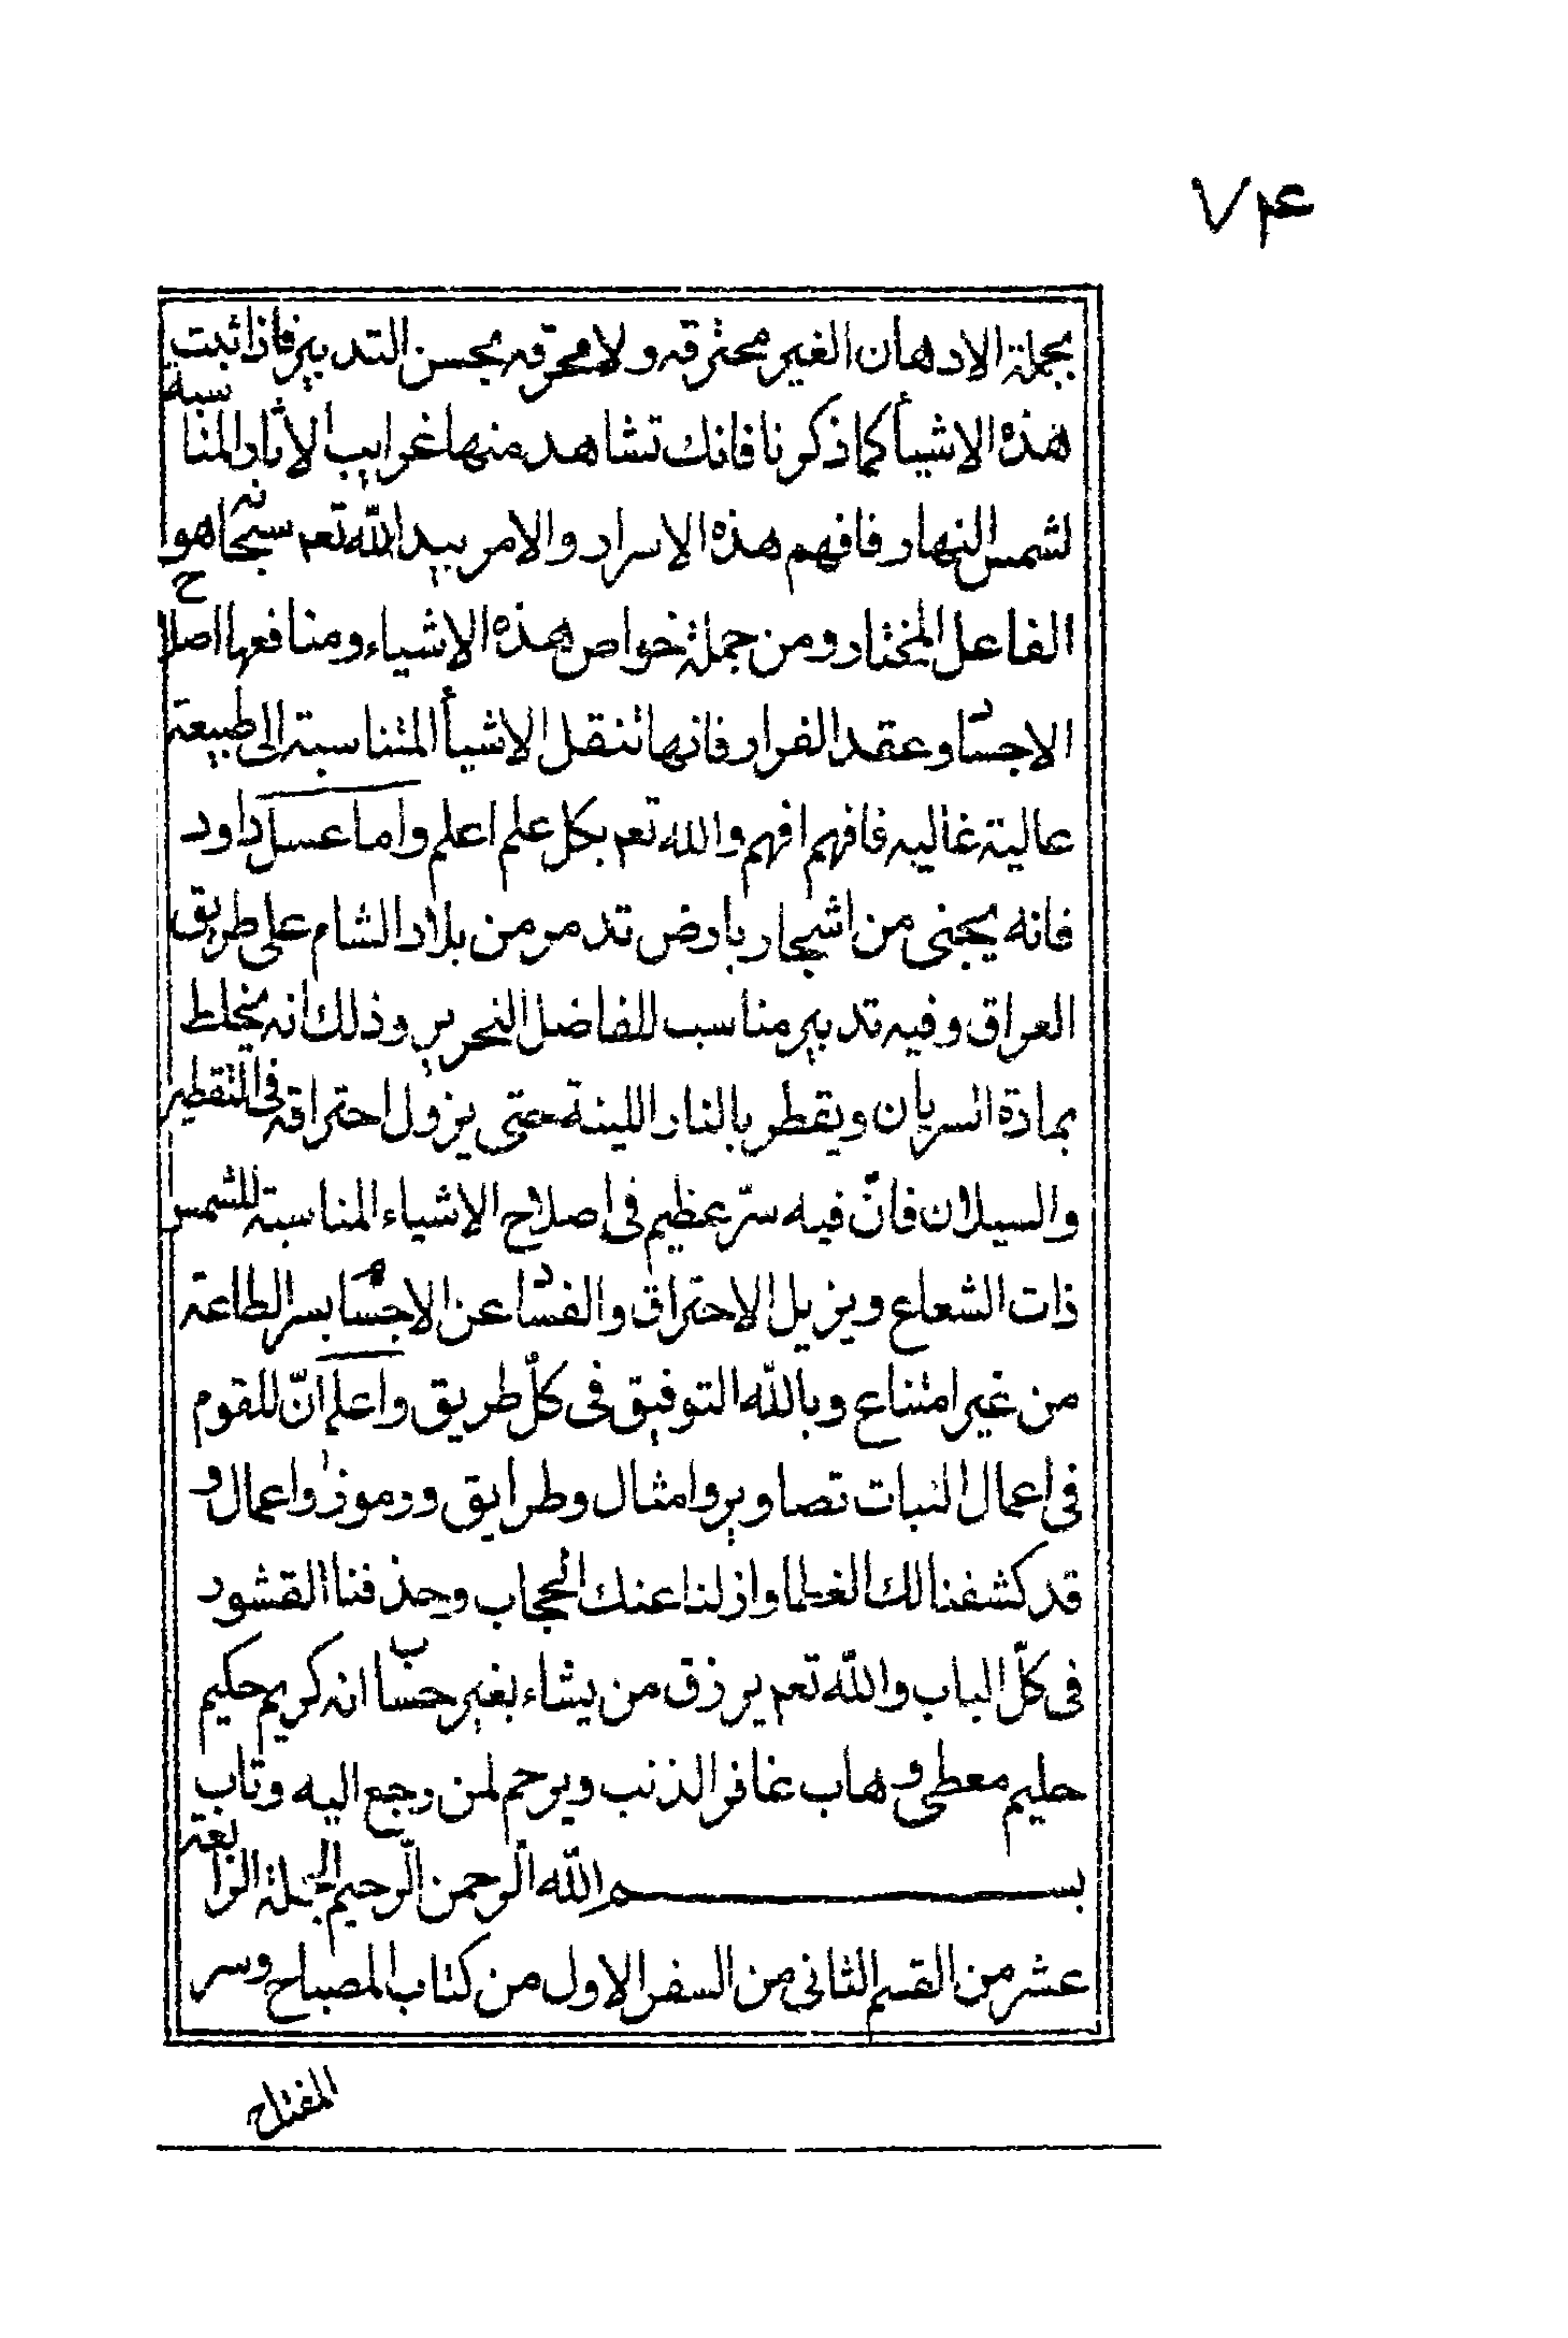 ۷۴
بجملة الادهان الغير محترقه ولا محرقه بحسن التدبير فاذا ثبت
هذه الاشيأ كما ذكرنا فانك تشاهد منها غرايب الاثار المناسبه
لشمس النهار فافهم هذه الاسرار والامر بيد الله تعم سبحانه هو
الفاعل المختار ومن جملة خواص هذه الاشياء ومنافعها اصلاح
الاجساد وعقد الفرار فانها تنقل الاشيأ المتناسبة الى طبيعة
عالية غاليه فافهم افهم والله تعم بكل علم اعلم واما عسل داود
فانه يجنى من اشجار بارض تدمر من بلاد الشام على طريق
العراق وفيه تدبير مناسب للفاضل النحرير وذلك انه يخلط
بمادة السريان ويقطر بالنار اللينة حتى يزول احتراقه فى التقطير
والسيلان فانّ فيه سرّ عظيم فى اصلاح الاشياء المناسبة للشمس
ذات الشعاع ويزيل الاحتراق والفساد عن الاجسام بسر الطاعة
من غير امتناع وبالله التوفيق فى كلّ طريق واعلم انّ للقوم
فى اعمال النبات تصاوير وامثال وطرايق ورموز واعمال و
قد كشفنا لك الغطا وازلنا عنك الحجاب وحذفنا القشور
فى كلّ الباب والله تعم يرزق من يشاء بغير حساب انه كريم حكيم
حليم معطى وهاب غافر الذنب ويرحم لمن رجع اليه وتاب
بسم الله الرحمن الرحيم الجملة الرابعة
عشر من القسم الثانى من السفر الاول من كتاب المصباح وسر
المفتاح